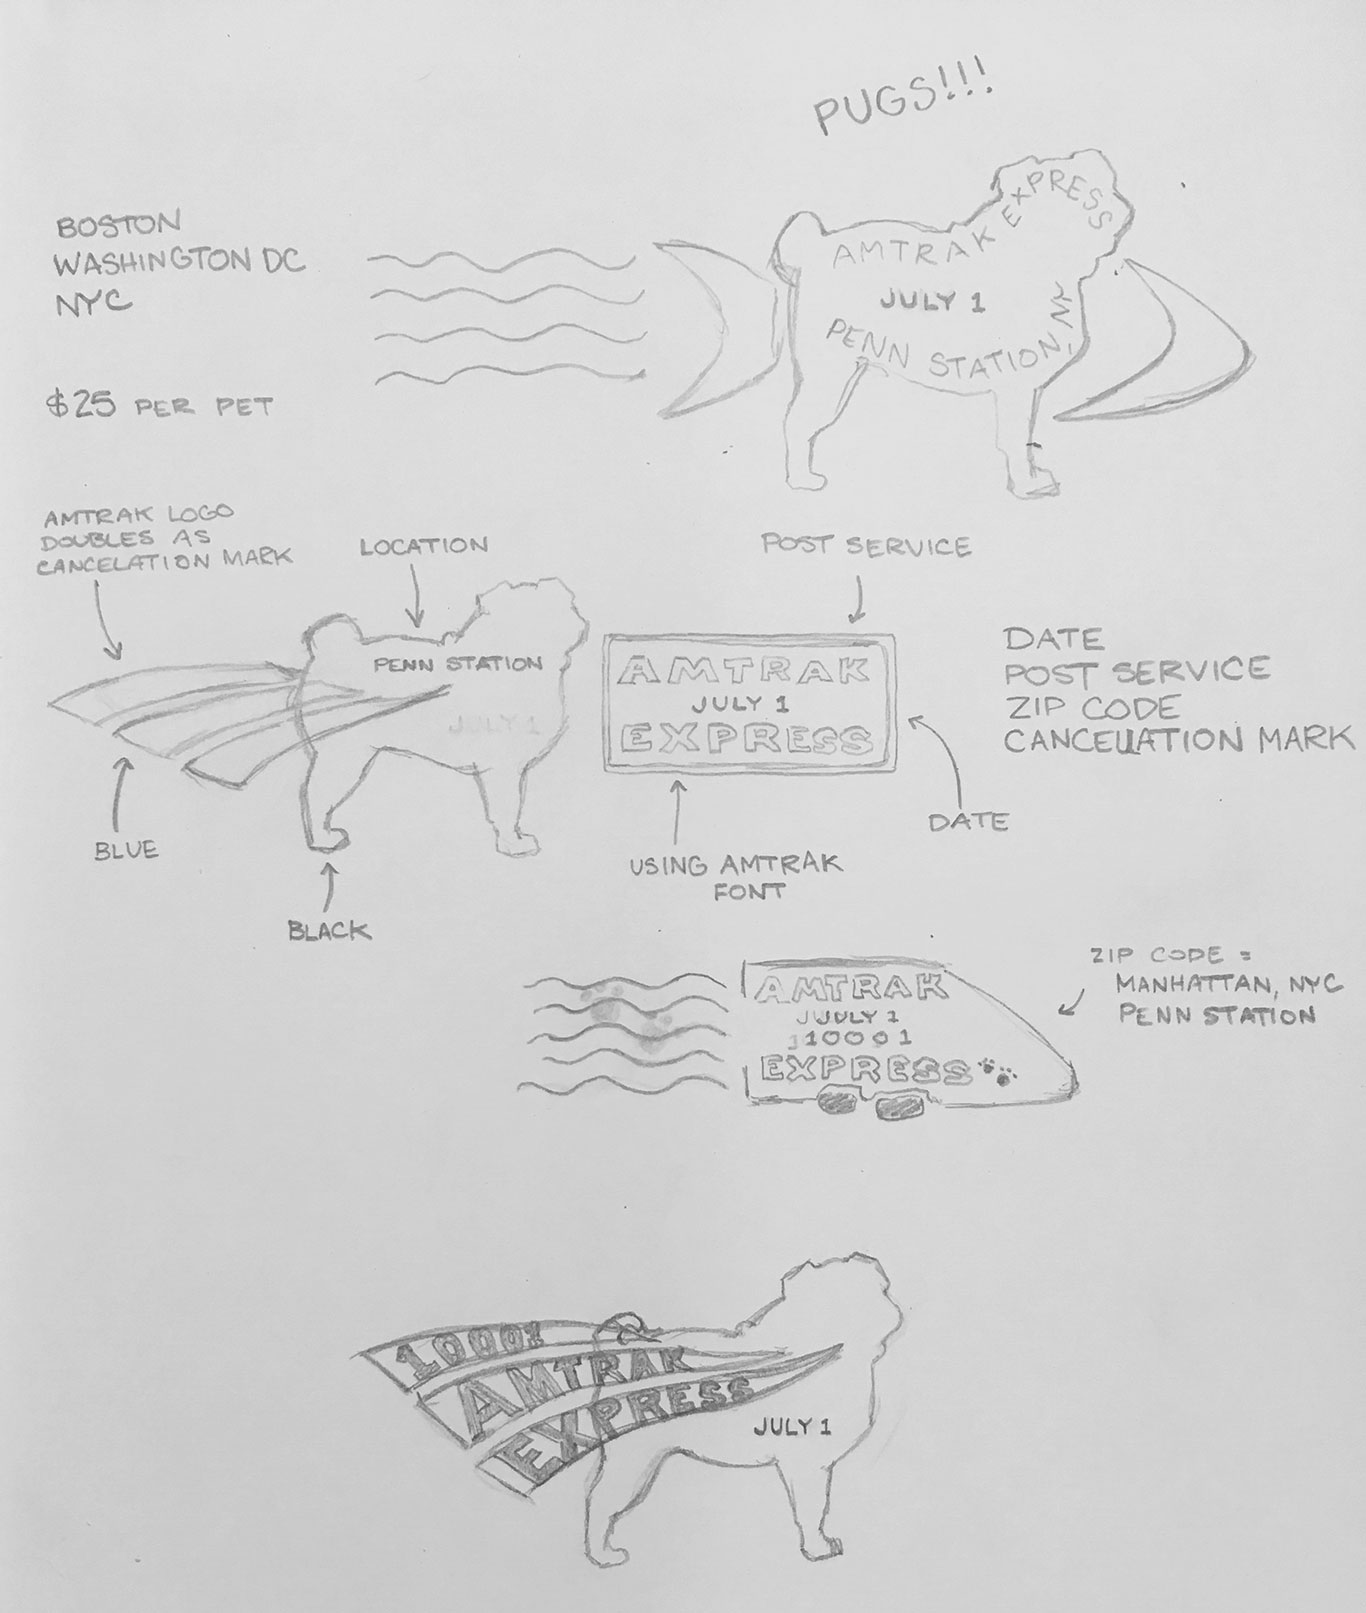 PUGS!!!
BOSTON
WASHINGTON DC
NYC
$25 PER PET
AMTRAK EXPRESS
JULY 1
PENN STATION, NY
AMTRAK LOGO
DOUBLES AS
CANCELATION MARK
LOCATION
PENN STATION
JULY 1
BLUE
BLACK
POST SERVICE
AMTRAK
JULY 1
EXPRESS
USING AMTRAK
FONT
DATE
DATE
POST SERVICE
ZIP CODE
CANCELLATION MARK
AMTRAK
JULY 1
10001
EXPRESS
ZIP CODE =
MANHATTAN, NYC
PENN STATION
10001
AMTRAK
EXPRESS
JULY 1